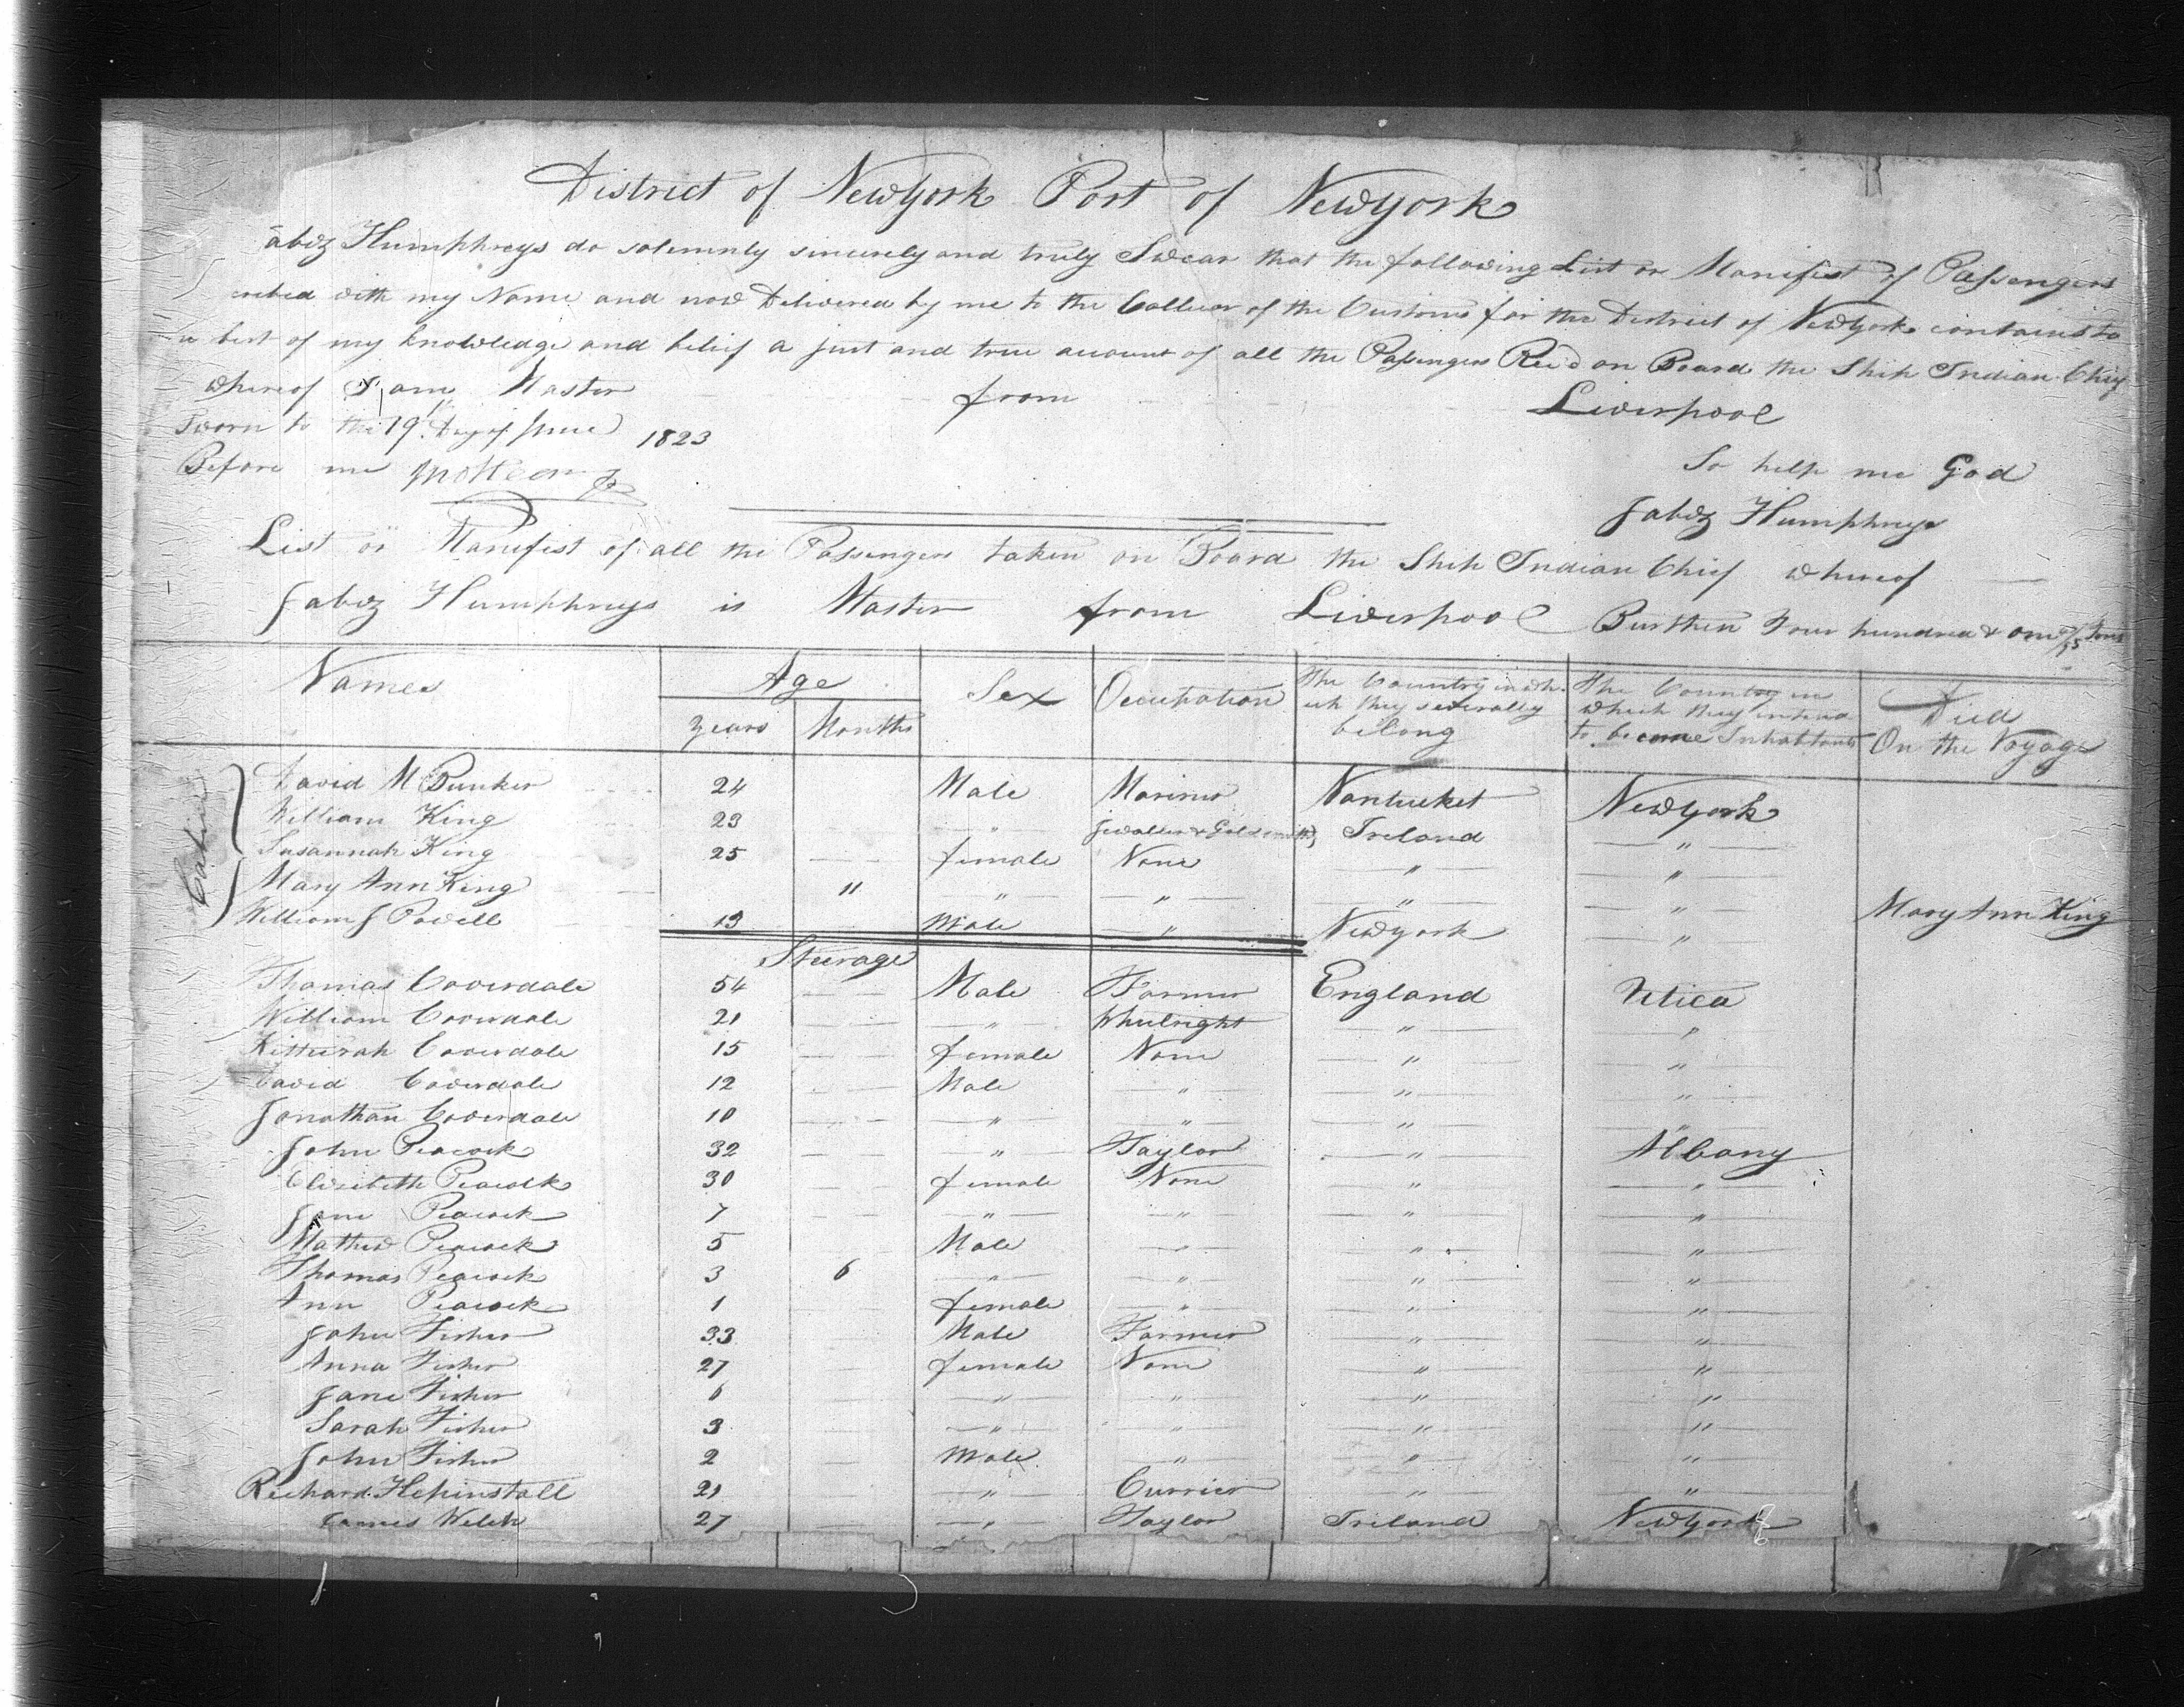 District of NewYork Port of NewYork
abez Humphreys do solemnly sincerely and truly Swear that the following List or Manifest of Passengers
cribed with my Name and now Delivered by me to the Collector of the Customs for the District of NewYork contains to
e best of my knowledge and belief a just and true account of all the Passengers Rec'd on Board the Ship Indian Chief
whereof I am Master from Liverpool
Sworn to the 19 Day of June 1823
Before me
So help me God
Jabez Humphreys
List or Manifest of all the Passengers taken on Board the Ship Indian Chief whereof
Jabez Humphreys is Master from Liverpool Burthen Four hundred & one /95 Tons
Names Age Sex Occupation The Country in wh- The Country in Died
Years Months ich they severally which they intend On the Voyage
belong to become Inhabitants
Cabin
David M Bunker 24 Male Mariner Nantucket NewYork
William King 23 " Jeweller & Goldsmith Ireland "
Susannah King 25 female None " "
Mary Ann King 11 " " " " Mary Ann King
William J Powell 13 Male " Newyork "
Steerage
Thomas Coverdale 54 Male Farmer England Utica
William Coverdale 21 " Whelright " "
Kitturah Coverdale 15 female None " "
David Coverdale 12 Male " " "
Jonathan Coverdale 10 " " " "
John Peacock 32 " Taylor " Albany
Elizabeth Peacock 30 female None " "
Jane Peacock 7 " " " "
Mathew Peacock 5 Male " " "
Thomas Peacock 3 6 " " " "
Ann Peacock 1 female " " "
John Fisher 33 Male Farmer " "
Anna Fisher 27 female None " "
Jane Fisher 6 " " " "
Sarah Fisher 3 " " " "
John Fisher 2 Male " " "
Richard Hepinstall 21 " Currier " "
James Welch 27 " Taylor Ireland NewYork